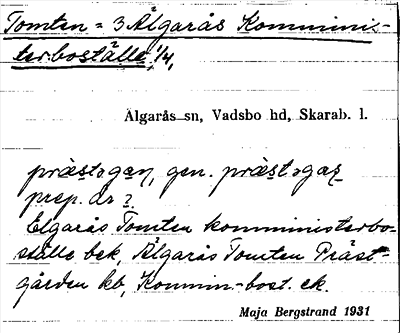 Tomten = 3 Älgarås Komminis-
terboställe, 1/4,
Älgarås sn, Vadsbo hd, Skarab. l.
præstogan, gen. præstogaz
prep. dr ?
Elgarås Tomten komministerbo-
ställe bek, Älgarås Tomten Präst-
gården kb, Kommin-bost. ek.
Maja Bergstrand 1931